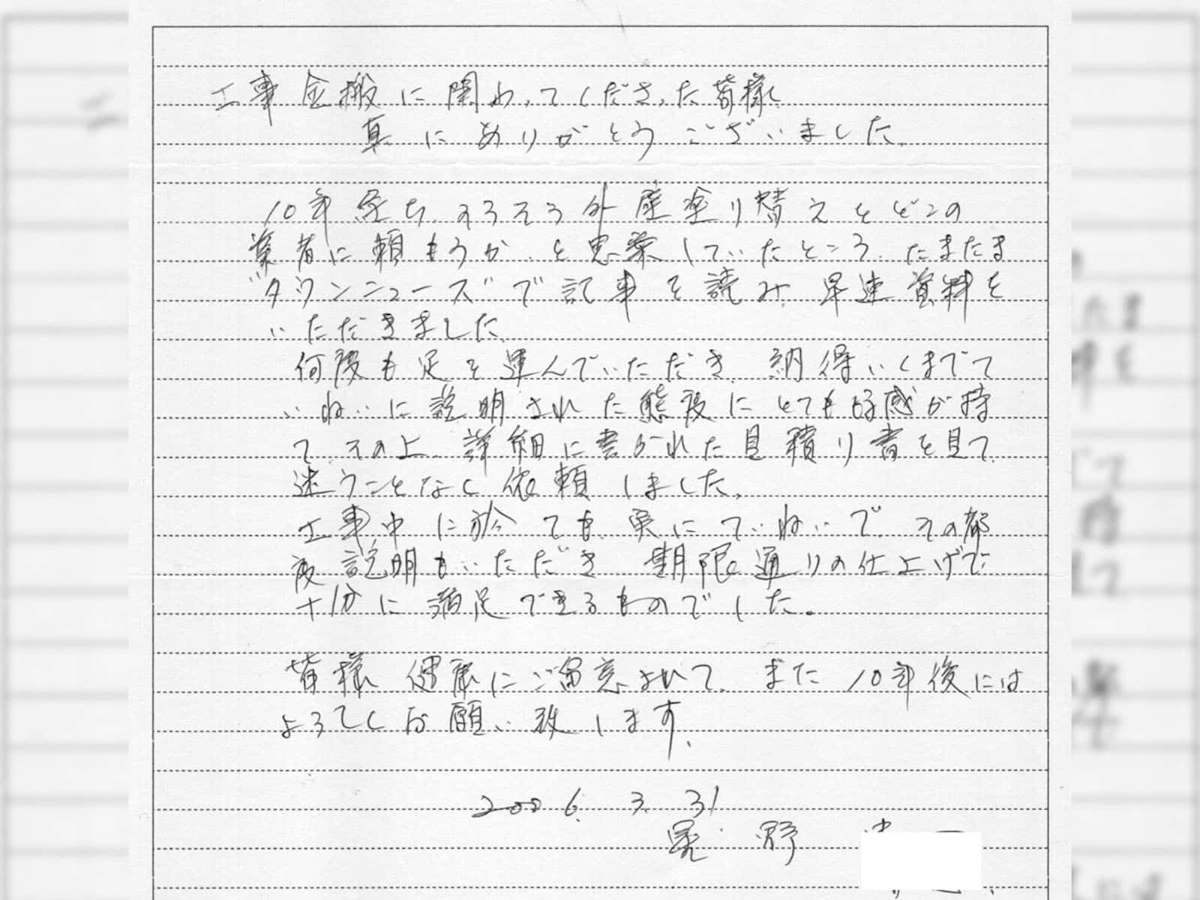 工事全搬に関わってくださった皆様
真にありがとうございました。
10年経ち、そろそろ外壁塗り替えをどこの
業者に頼もうか、と思案していたところ、たまたま
"タウンニュース"で記事を読み、早速資料を
いただきました。
何度も足を運んでいただき、納得いくまでて
いねいに説明された態度にとても好感が持
て、その上、詳細に書かれた見積り書を見て、
迷うことなく依頼しました。
工事中に於ても、実にていねいで、その都
度説明もいただき、期限通りの仕上げで
十分に満足できるものでした。
皆様 健康にご留意されて、また10年後には
よろしくお願い致します。
2006. 3. 31